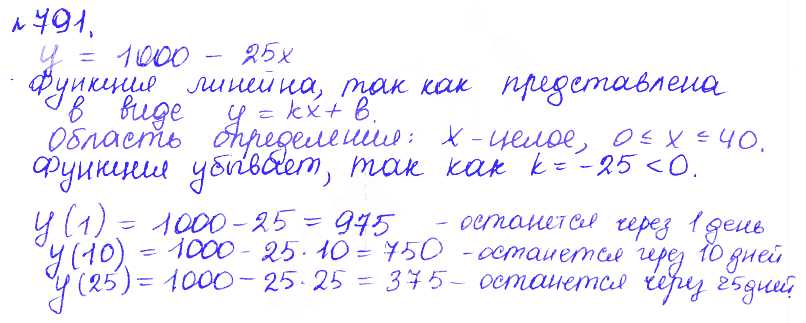 №791.
y = 1000 - 25x
Функция линейна, так как представлена
в виде y = kx + b.
Область определения: x - целое, 0 ≤ x ≤ 40.
Функция убывает, так как k = -25 < 0.
y(1) = 1000 - 25 = 975 - останется через 1 день
y(10) = 1000 - 25·10 = 750 - останется через 10 дней
y(25) = 1000 - 25·25 = 375 - останется через 25 дней.